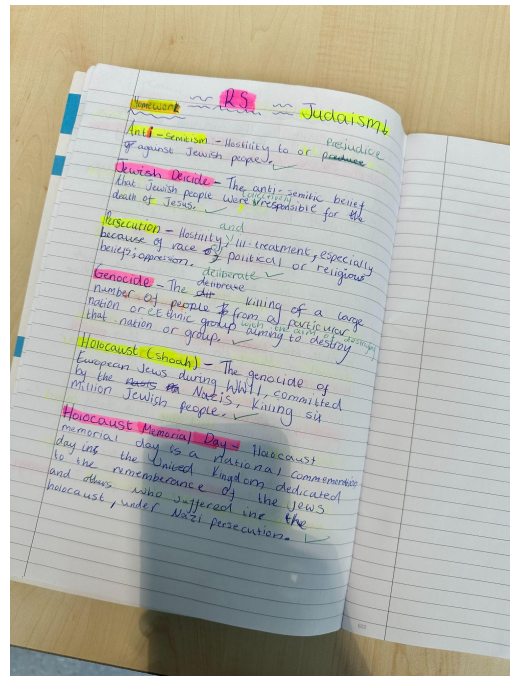 Homework RS Judaism
Prejudice
Anti-semitism - Hostility to or
against Jewish people.
Jewish Deicide - The anti-semitic belief
that Jewish people were collectively responsible for the
death of Jesus.
and
Persecution - Hostility, ill-treatment, especially
because of race or political or religious
beliefs, oppression.
deliberate
Genocide - The delibrate killing of a large
number of people from a particular
nation or Ethnic group with the aim of destroying
aiming to destroy
that nation or group.
Holocaust (shoah) - The genocide of
European Jews during WW11, committed
by the Nazis, killing six
million Jewish people.
Holocaust Memorial Day - Holocaust
memorial day is a national commemoration
day in the United Kingdom dedicated
to the rememberance of the Jews
and others who suffered in the
holocaust, under Nazi persecution.